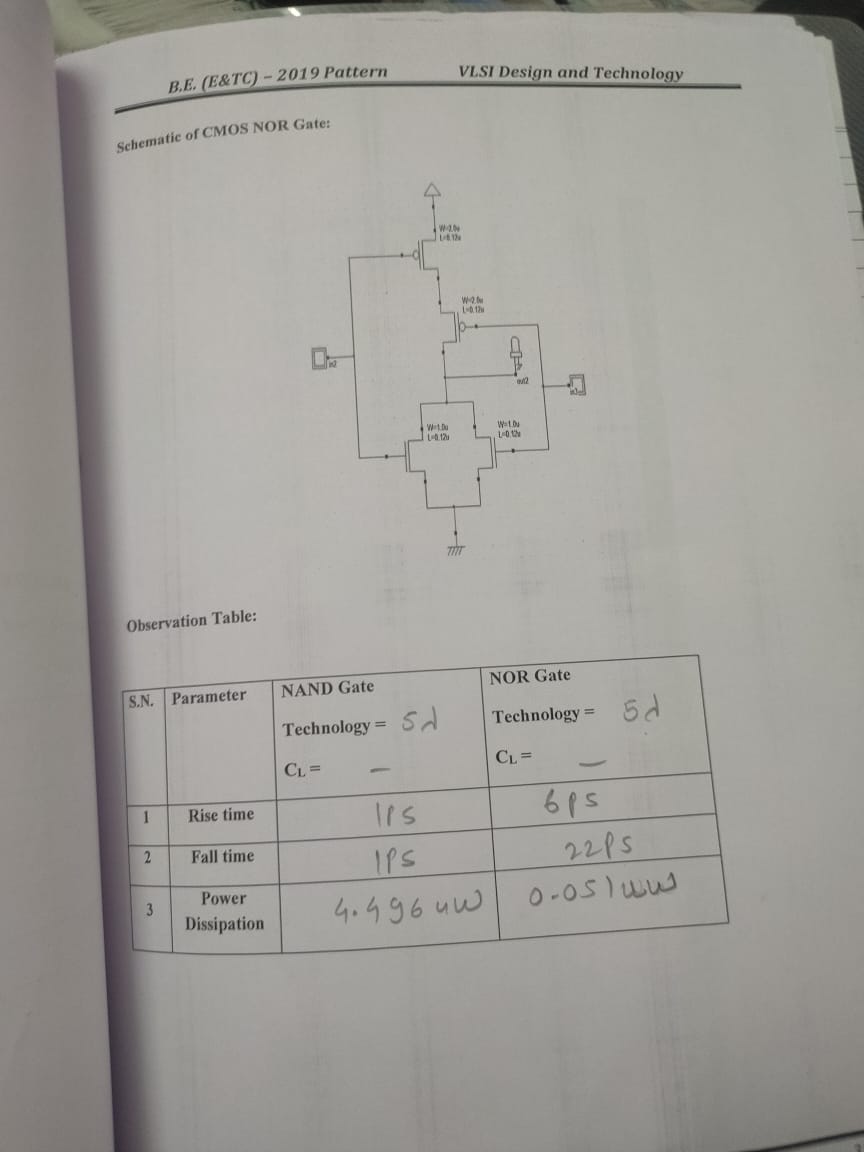 B.E. (E&TC) – 2019 Pattern VLSI Design and Technology
Schematic of CMOS NOR Gate:
W=2.0u
L=0.12u
W=2.0u
L=0.12u
in2
out2
W=1.0u
L=0.12u
W=1.0u
L=0.12u
Observation Table:
S.N. Parameter NAND Gate NOR Gate
Technology = 5λ Technology = 5λ
CL = – CL = –
1 Rise time 1PS 6PS
2 Fall time 1PS 22PS
3 Power Dissipation 4.496 uw 0.051 uw